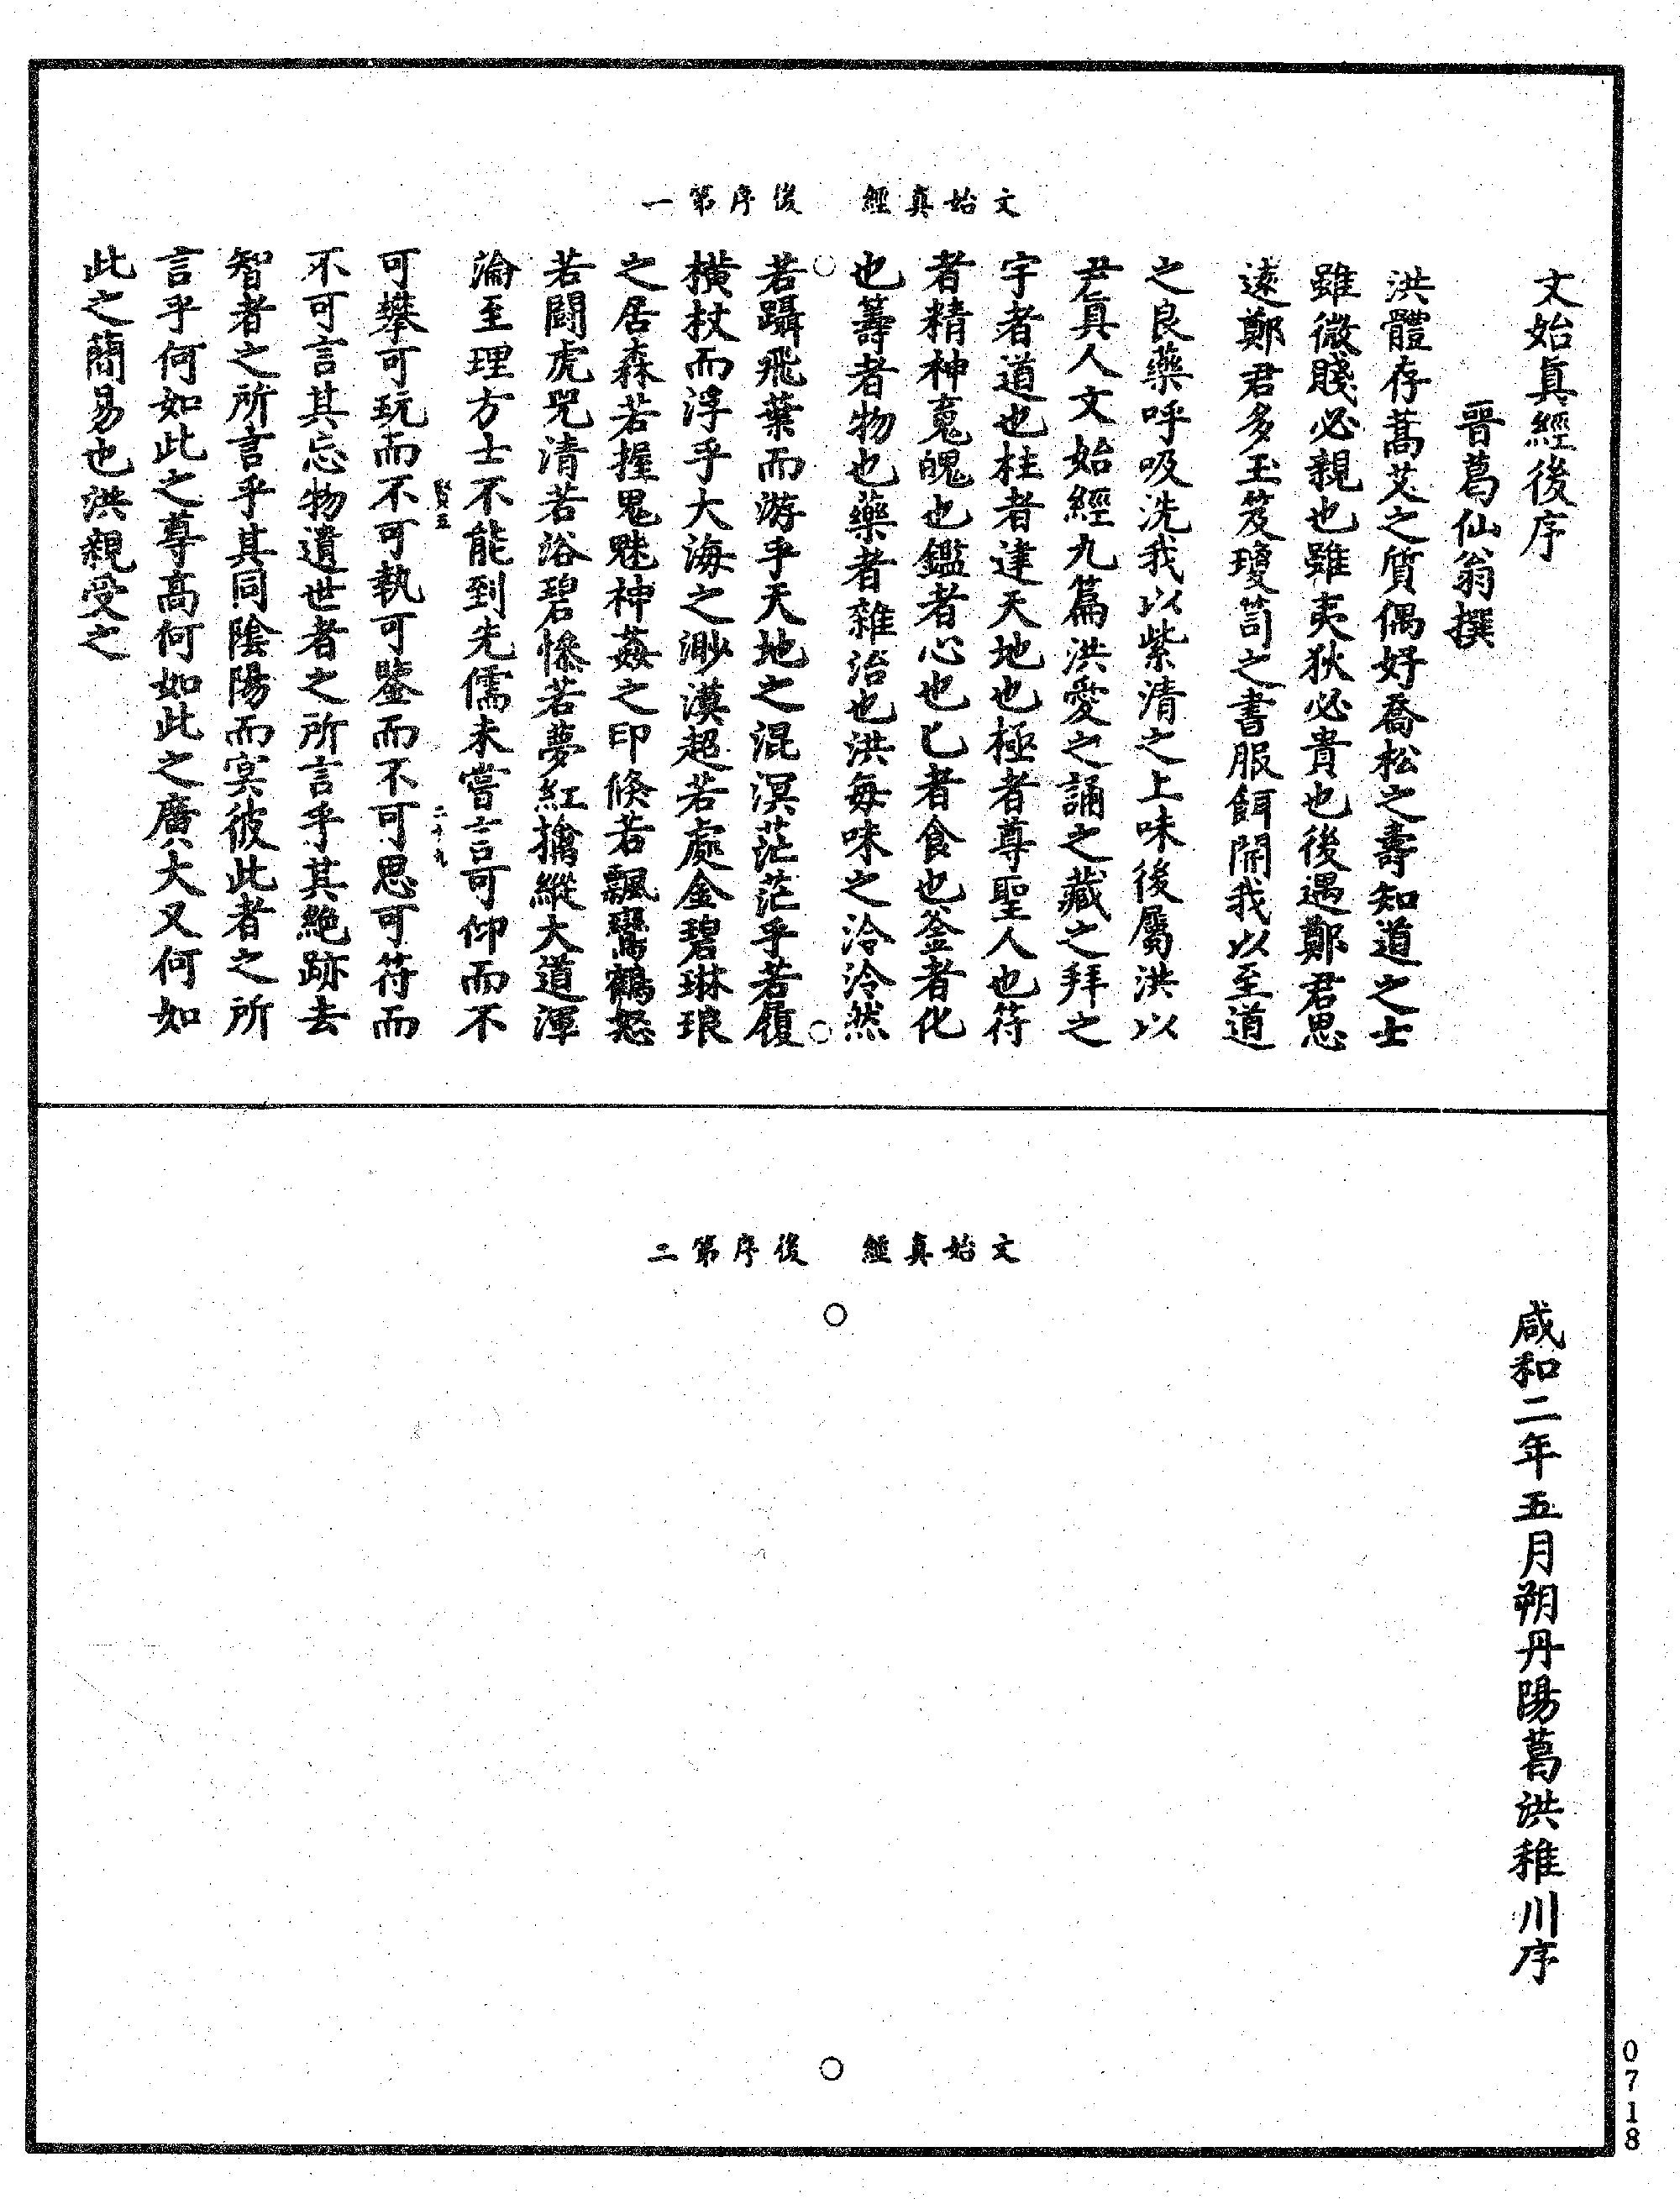 文始真經　後序第一
文始眞經後序
晉葛仙翁撰
洪體存蒿艾之質偶好喬松之壽知道之士
雖微賤必親也雖夷狄必貴也後遇鄭君思
遠鄭君多玉笈瓊笥之書服餌開我以至道
之良藥呼吸洗我以紫清之上味後屬洪以
尹真人文始經九篇洪愛之誦之藏之拜之
宇者道也柱者建天地也極者尊聖人也符
者精神䰟魄也鑑者心也匕者食也釜者化
也籌者物也藥者雜治也洪每味之泠泠然
若躡飛葉而游乎天地之混溟茫茫乎若履
橫杖而浮乎大海之渺漠超若處金碧琳琅
之居森若握鬼魅神姦之印倏若飄鸞鶴怒
若鬪虎兕清若浴碧慘若夢紅擒縱大道渾
淪至理方士不能到先儒未嘗言可仰而不
賢五
二十九
可攀可玩而不可執可鑒而不可思可符而
不可言其忘物遺世者之所言乎其絶跡去
智者之所言乎其同陰陽而冥彼此者之所
言乎何如此之尊高何如此之廣大又何如
此之蕳易也洪親受之
文始真經　後序第二
咸和二年五月朔丹陽葛洪稚川序
0718